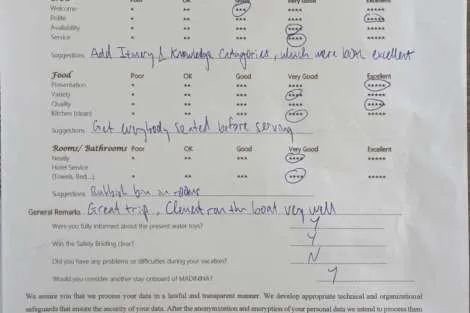 Poor OK Good Very Good Excellent
Welcome * ** *** **** *****
Polite * ** *** **** *****
Availability * ** *** **** *****
Service * ** *** **** *****
Suggestions: Add Itinerary & Knowledge Categories, which were both excellent
Food Poor OK Good Very Good Excellent
Presentation * ** *** **** *****
Variety * ** *** **** *****
Quality * ** *** **** *****
Kitchen (clean) * ** *** **** *****
Suggestions: Get everybody seated before serving
Rooms/ Bathrooms Poor OK Good Very Good Excellent
Neatly * ** *** **** *****
Hotel Service
(Towels, Bed...) * ** *** **** *****
Suggestions: Rubbish bin in rooms
General Remarks: Great trip, ran the boat very well
Were you fully informed about the present water toys? Y
Win the Safety Briefing clear? Y
Did you have any problems or difficulties during your vacation? N
Would you consider another stay onboard of MADININA? Y
We assure you that we process your data in a lawful and transparent manner. We develop appropriate technical and organizational
safeguards that ensure the security of your data. After the anonymization and encryption of your personal data we intend to process them